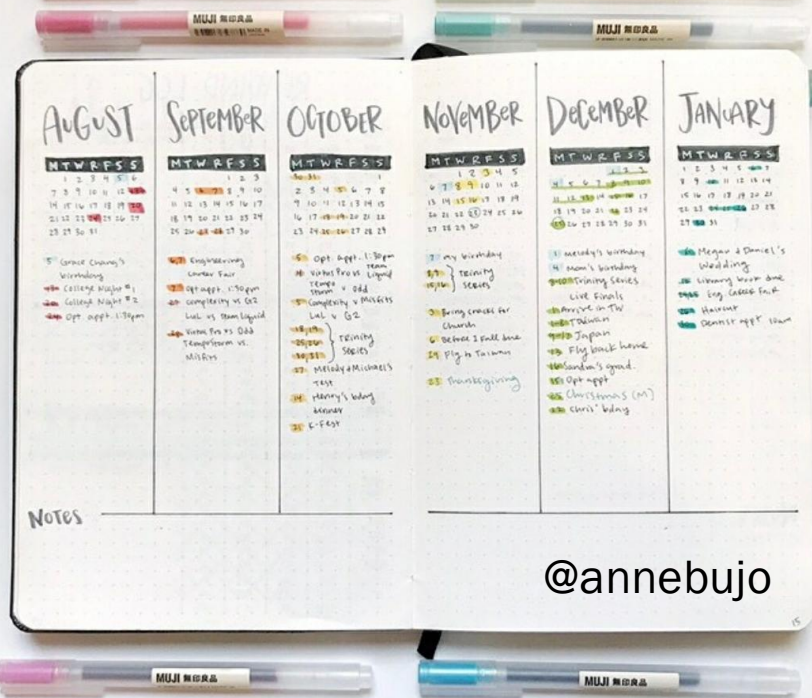 MUJI 無印良品
MUJI 無印良品
AUGUST
M T W R F S S
1 2 3 4 5 6
7 8 9 10 11 12
14 15 16 17 18 19 20
21 22 23 24 25 26 27
28 29 30 31
5 Grace Chang's
birthday
College Night #1
College Night #2
Opt. appt. 1:30pm
SEPTEMBER
M T W R F S S
1 2 3
4 5 6 7 8 9 10
11 12 13 14 15 16 17
18 19 20 21 22 23 24
25 26 27 28 29 30
6,7 Engineering
Career Fair
Opt appt. 1:30pm
Complexity vs G2
LuL vs Team Liquid
Virtus Pro vs Odd
Tempostorm vs.
Misfits
OCTOBER
M T W R F S S
30 31 1
2 3 4 5 6 7 8
9 10 11 12 13 14 15
16 17 18 19 20 21 22
23 24 25 26 27 28 29
5 Opt. appt. 1:30pm
Virtus Pro vs Team Liquid
Tempo Storm v Odd
Complexity v Misfits
LuL v G2
18,19
25,26
30,31
Trinity
Series
Melody & Michael's
Test
14 Henry's bday
dinner
K-Fest
NOVEMBER
M T W R F S S
1 2 3 4 5
6 7 8 9 10 11 12
13 14 15 16 17 18 19
20 21 22 23 24 25 26
27 28 29 30
7 My birthday
8,9
15,16
Trinity
Series
Bring snacks for
Church
Before I Fall due
29 Fly to Taiwan
23 Thanksgiving
DECEMBER
M T W R F S S
1 2 3
4 5 6 7 8 9 10
11 12 13 14 15 16 17
18 19 20 21 22 23 24
25 26 27 28 29 30 31
1 Melody's birthday
4 Mom's birthday
Trinity Series
Live Finals
Arrive in TW
Taiwan
Japan
Fly back home
Sandra's grad.
Opt appt
Christmas (M)
Chris' bday
JANUARY
M T W R F S S
1 2 3 4 5 6 7
8 9 10 11 12 13 14
15 16 17 18 19 20 21
22 23 24 25 26 27 28
29 30 31
Megan & Daniel's
Wedding
Library book due
Eng. Career Fair
Haircut
Dentist appt
NOTES
@annebujo
15
MUJI 無印良品
MUJI 無印良品